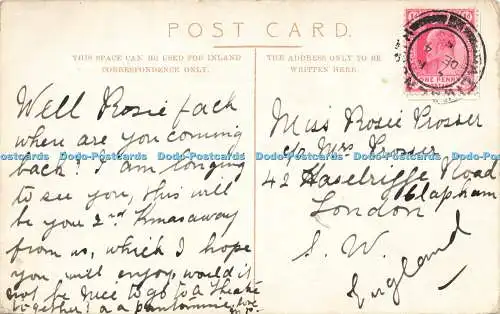 POST CARD.
THIS SPACE CAN BE USED FOR INLAND
CORRESPONDENCE ONLY.
THE ADDRESS ONLY TO BE
WRITTEN HERE.
ONE PENNY
Well Rosie Jack
where are you coming
back? I am longing
to see you, this will
be you 2nd Xmas away
from us, which I hope
you will enjoy, would it
not be nice to go to a Theatre
together! or a pantomime, love
Miss Rosie Prosser
c/o Mrs Prosser
42 Haselrigge Road
Clapham
London
S. W.
England
Dodo-Postcards Dodo-Postcards Dodo-Postcards Dodo-Postcards Dodo-Postcards Dodo-Postcards
Dodo-Postcards Dodo-Postcards Dodo-Postcards Dodo-Postcards Dodo-Postcards Dodo-Postcards